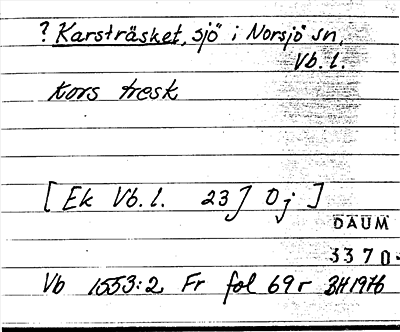 ? Karsträsket, sjö i Norsjö sn,
Vb. l.
Kors tresk
[Ek Vb. l. 23J Öj]
DAUM
3370.
Vb 1553:2 Fr fol 69r BH 1976